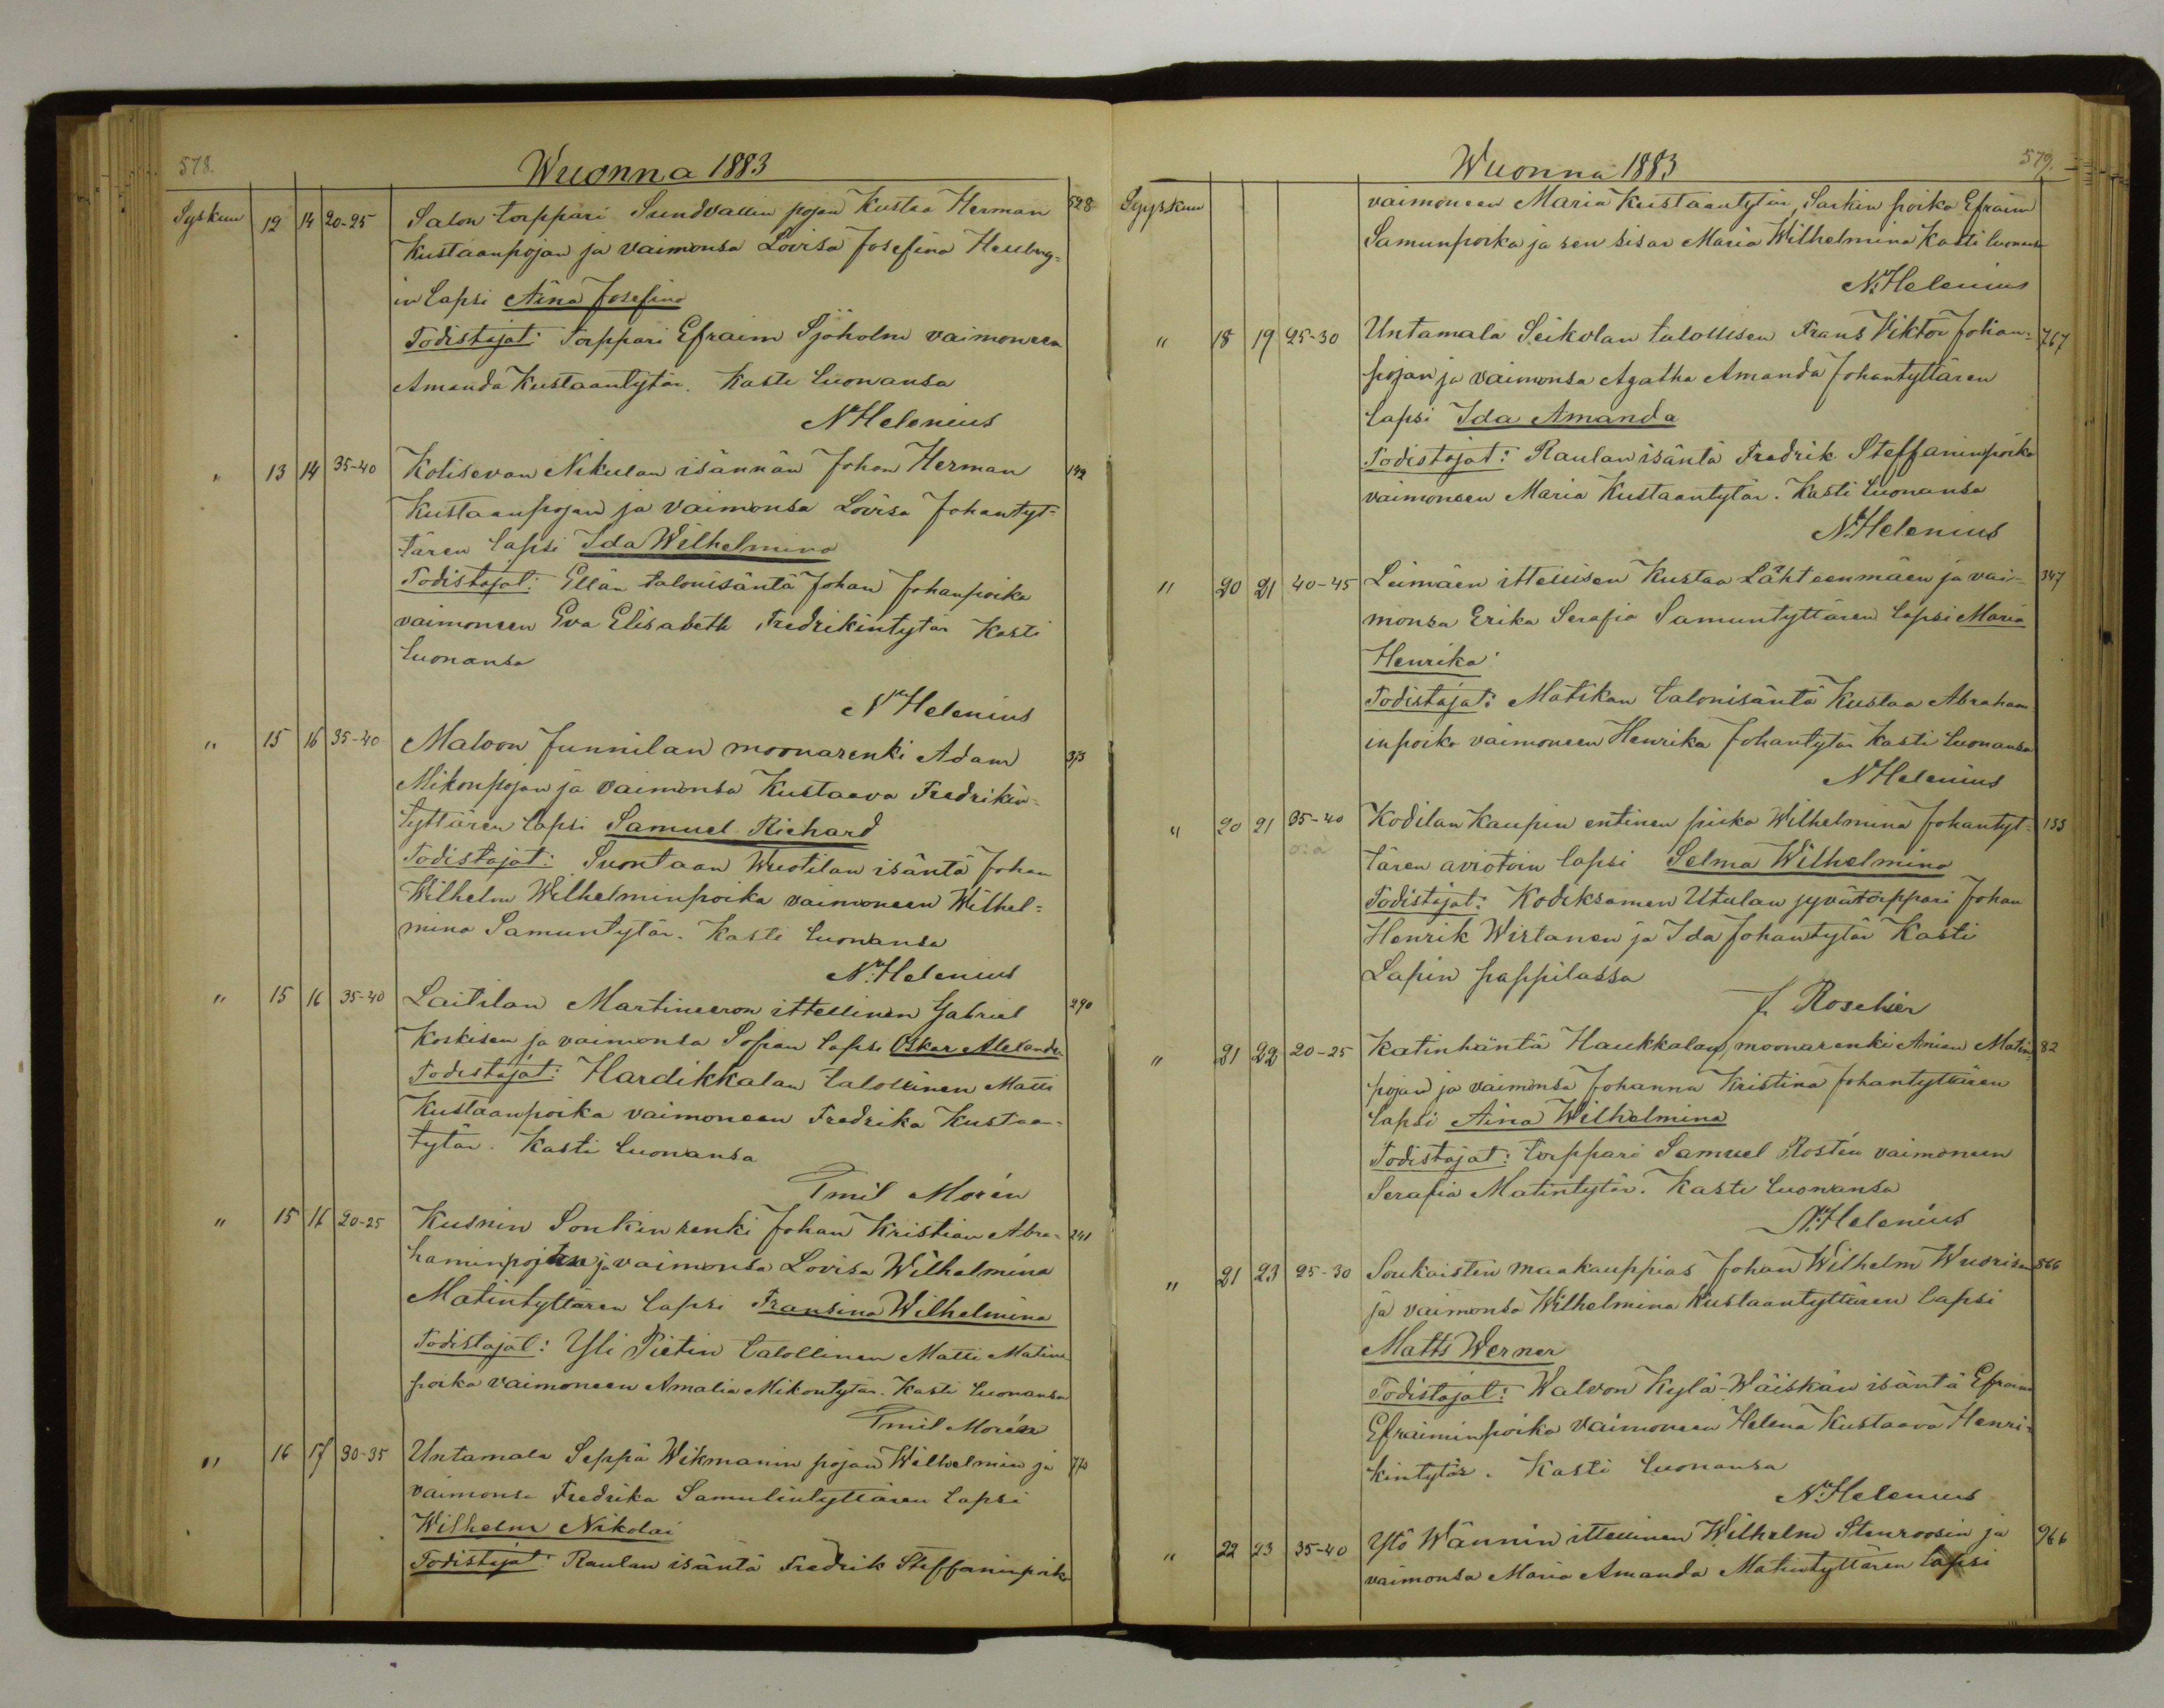 578.
Wuonna 1883
Syskuu 12 14 20-25 Salon torppari Sundvallin pojan Kustaa Herman 528
Kustaanpojan ja vaimonsa Lovisa Josefina
in lapsi Aina Josefina
Todistajat: Torppari Efraim Sjöholm vaimoneen
Amanda Kustaantytär. Kasti luonansa
N. Helenius
" 13 14 35-40 Kolisevan Nikulan isännän Johan Herman 192
Kustaanpojan ja vaimonsa Lovisa Johantyt=
tären lapsi Ida Wilhelmina
Todistajat: Ellän talonisäntä Johan Johanpoika
vaimoneen Eva Elisabeth Fredrikintytär Kasti
luonansa
N. Helenius
" 15 16 35-40 Malvon Junnilan moonarenki Adam
Mikonpojan ja vaimonsa Kustaava Fredrikin=
tyttären lapsi Samuel Richard
Todistajat: Suontaan Wuotilan isäntä Johan
Wilhelm Wilhelminpoika vaimoneen Wilhel=
mina Samuntytär. Kasti luonansa
N. Helenius
" 15 16 35-40 Laitilan ittellinen Gabriel 290
Koskisen ja vaimonsa Sofian lapsi Oskar Alexander
Todistajat: Hardikkalan talollinen Matti
Kustaanpoika vaimoneen Fredrika Kustaan=
tytär. Kasti luonansa
Emil Morén
" 15 16 20-25 Kusnin Sonkin renki Johan Kristian Abra= 241
haminpojan ja vaimonsa Lovisa Wilhelmina
Matintyttären lapsi Fransina Wilhelmina
Todistajat: Yli Pietin talollinen Matti Matin
poika vaimoneen Amalia Mikontytär. Kasti luonansa
Emil Morén
" 16 17 30-35 Untamala Seppä Wikmanin pojan Wilhelmin ja
vaimonsa Fredrika Samulintyttären lapsi
Wilhelm Nikolai
Todistajat: Raulan isäntä Fredrik Steffaninpoika
579.
Wuonna 1883
Syyskuu vaimoneen Maria Kustaantytär, Sarkin poika Efraim
Samunpoika ja sen sisar Maria Wilhelmina Kasti luonansa
N. Helenius
" 18 19 25-30 Untamala Seikolan talollisen Frans Viktor Johan= 767
pojan ja vaimonsa Agatha Amanda Johantyttären
lapsi Ida Amanda
Todistajat: Raulan isäntä Fredrik Steffaninpoika
vaimoneen Maria Kustaantytär. Kasti luonansa
N. Helenius
" 20 21 40-45 Leimäen ittellisen Kustaa Lähteenmäen ja vai= 347
monsa Erika Serafia Samuntyttären lapsi Maria
Henrika
Todistajat: Matikan talonisäntä Kustaa Abraham
inpoika vaimoneen Henrika Johantytär Kasti luonansa
N. Helenius
" 20 21 35-40 Kodilan Kaupin entinen piika Wilhelmina Johantyt= 155
o:a tären aviotoin lapsi Selma Wilhelmina
Todistajat: Kodiksamen Utulan jyvätorppari Johan
Henrik Wirtanen ja Ida Johantytär Kasti
Lapin pappilassa
J. Roschier
" 21 22 20-25 Katinhäntä Haukkalan moonarenki Matin= 82
pojan ja vaimonsa Johanna Kristina Johantyttären
lapsi Aina Wilhelmina
Todistajat: torppari Samuel Rostén vaimoneen
Serafia Matintytär. Kasti luonansa
N. Helenius
" 21 23 25-30 Soukaisten maakauppias Johan Wilhelm Wuorisen 866
ja vaimonsa Wilhelmina Kustaantyttären lapsi
Matts Werner
Todistajat: Walvon Kylä-Wäiskän isäntä Efraim
Efraiminpoika vaimoneen Helena Kustaava Henri=
kintytär. Kasti luonansa
N. Helenius
" 22 23 35-40 Ytö Wännin ittellinen Wilhelm Stenroosin ja 966
vaimonsa Maria Amanda Matintyttären lapsi